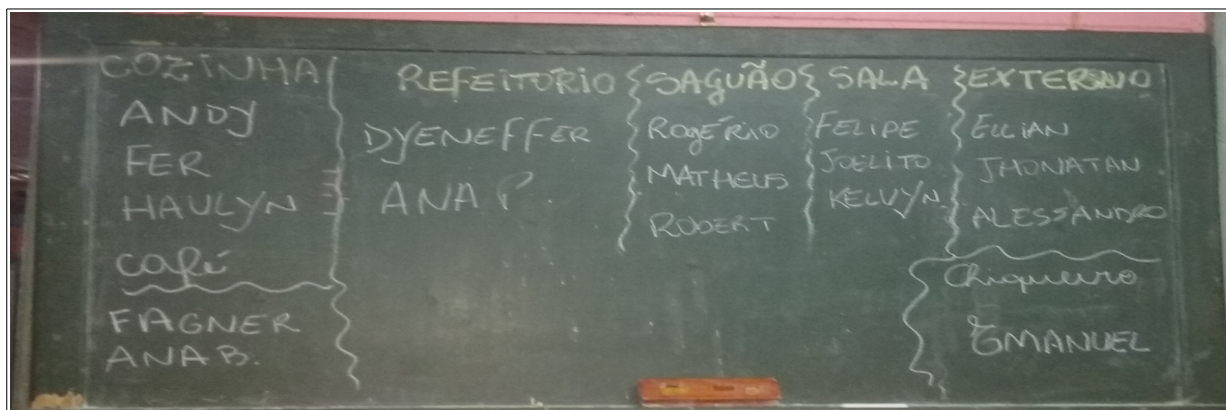 COZINHA
ANDY
FER
HAULYN
café
FAGNER
ANA B.
REFEITÓRIO
DYENEFFER
ANA P.
SAGUÃO
ROGÉRIO
MATHEUS
ROBERT
SALA
FELIPE
JOELITO
KELVYN
EXTERNO
ELLIAN
JHONATAN
ALESSANDRO
Chiqueiro
EMANUEL